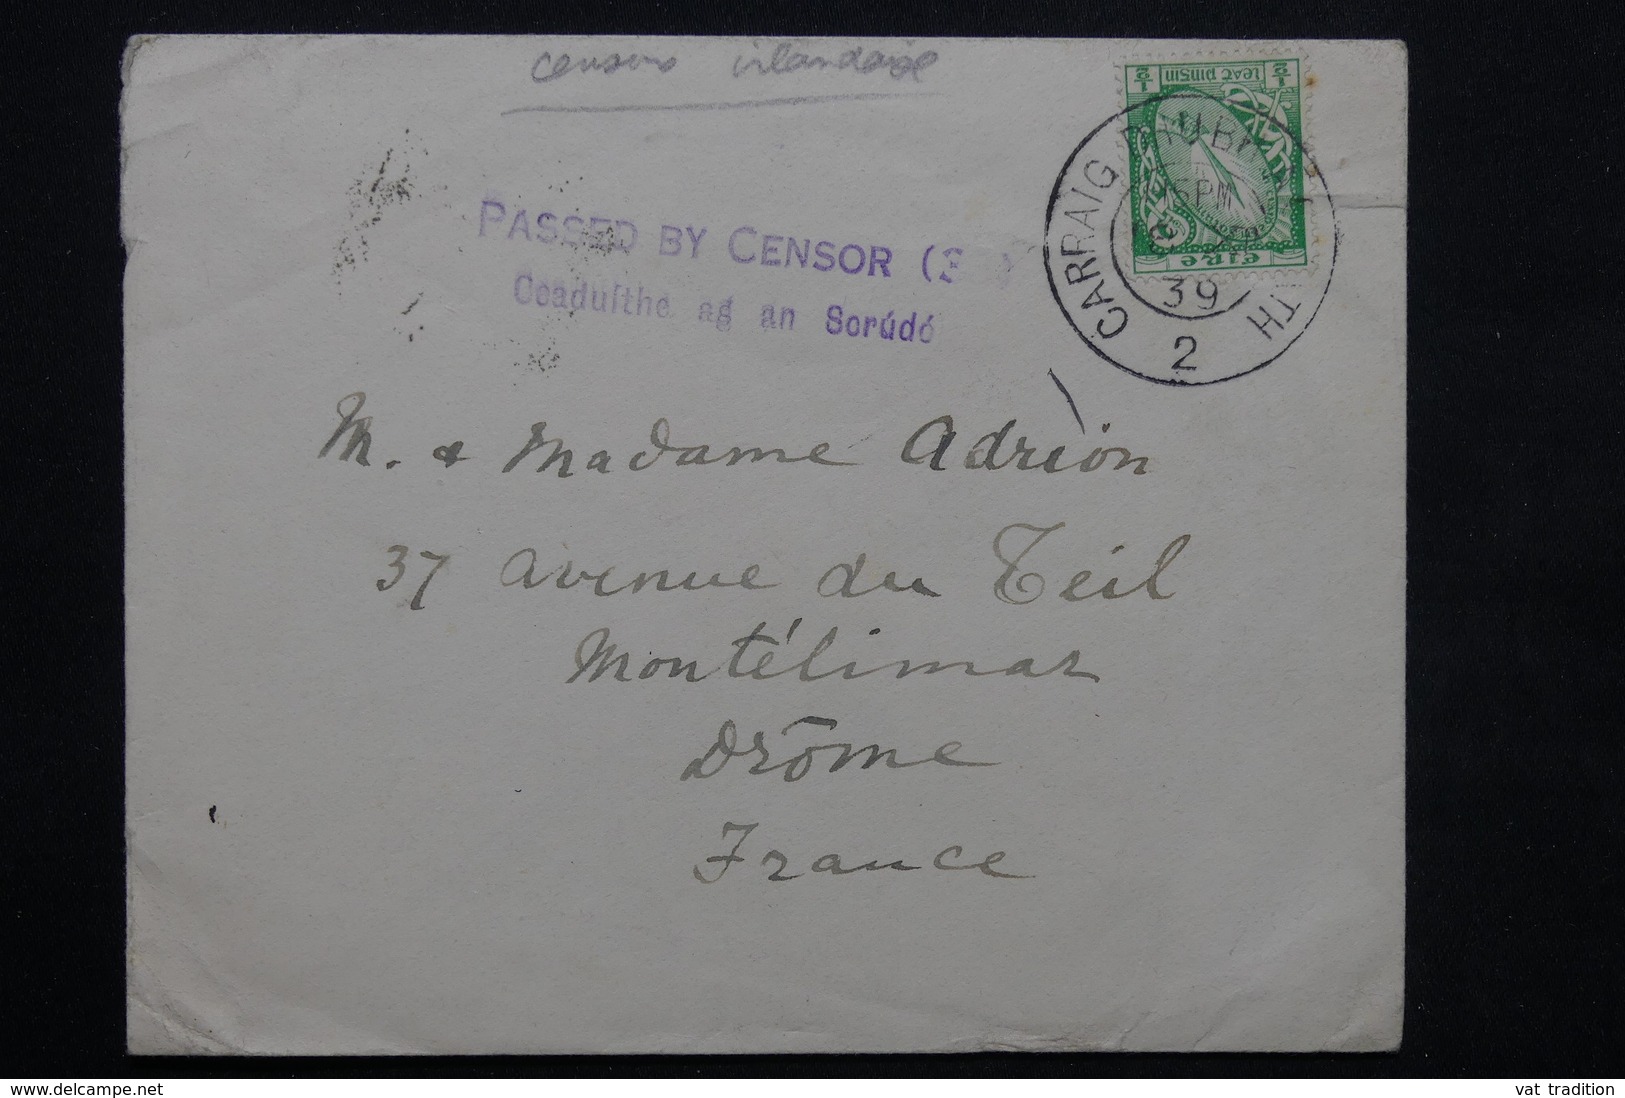 censure irlandaise
½ Leat Pingin ½
éire
CARRAIG
TH
15PM
39
2
PASSED BY CENSOR (3
Ceaduithe ag an Scrúdó
M. & Madame Adrion
37 avenue du Teil
Montélimar
Drôme
France
www.delcampe.net
vat tradition